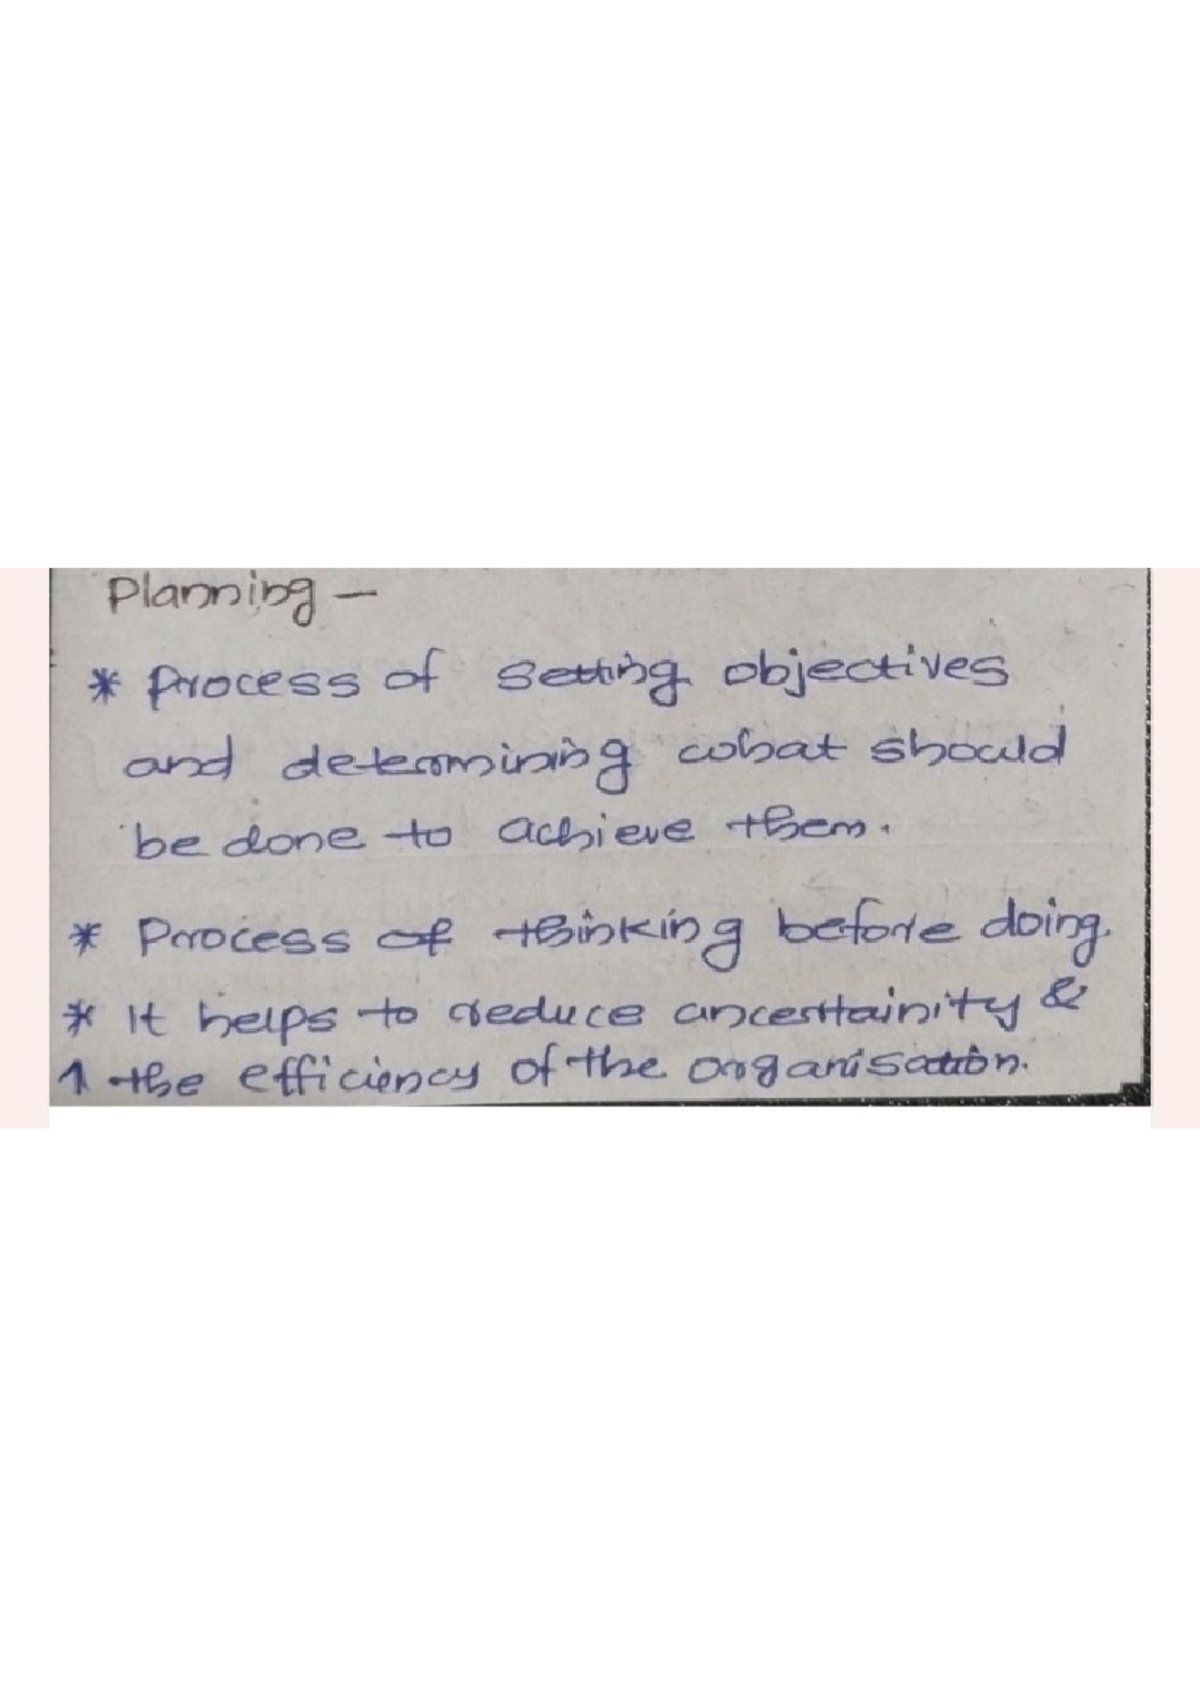 Planning –
* Process of setting objectives
and determining what should
be done to achieve them.
* Process of thinking before doing.
* It helps to reduce uncertainity &
↑ the efficiency of the organisation.